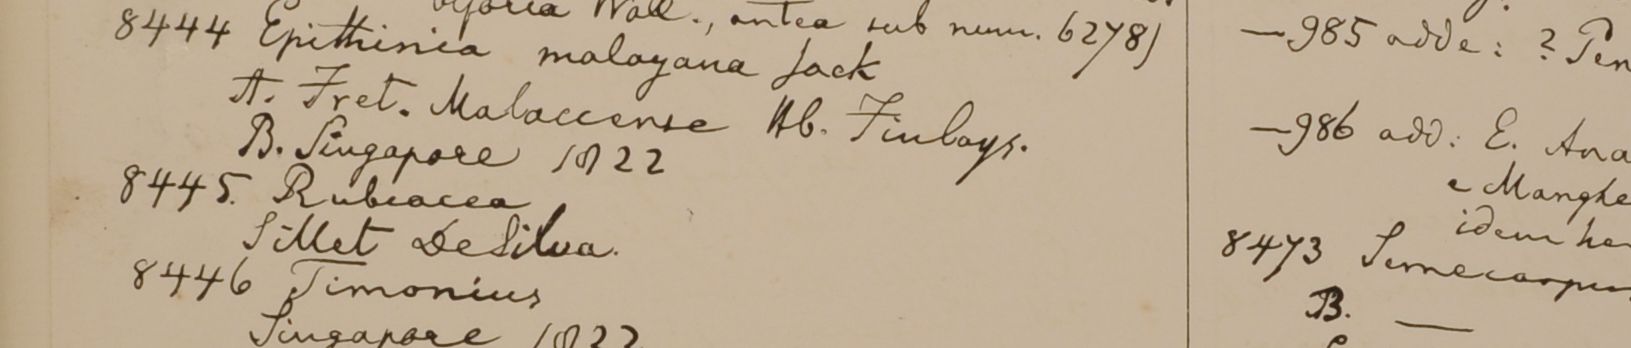 Wall., antea sub num. 6278)
8444 Epithinia malayana Jack
A. Fret. Malaccense Hb. Finlays.
B. Singapore 1822
8445. Rubiacea
Sillet DeSilva.
8446 Timonius
Singapore 1822
—985 adde: ? Pen
—986 add: E. Ana
e Manghe
idem he
8473 Semecarpus
B. —